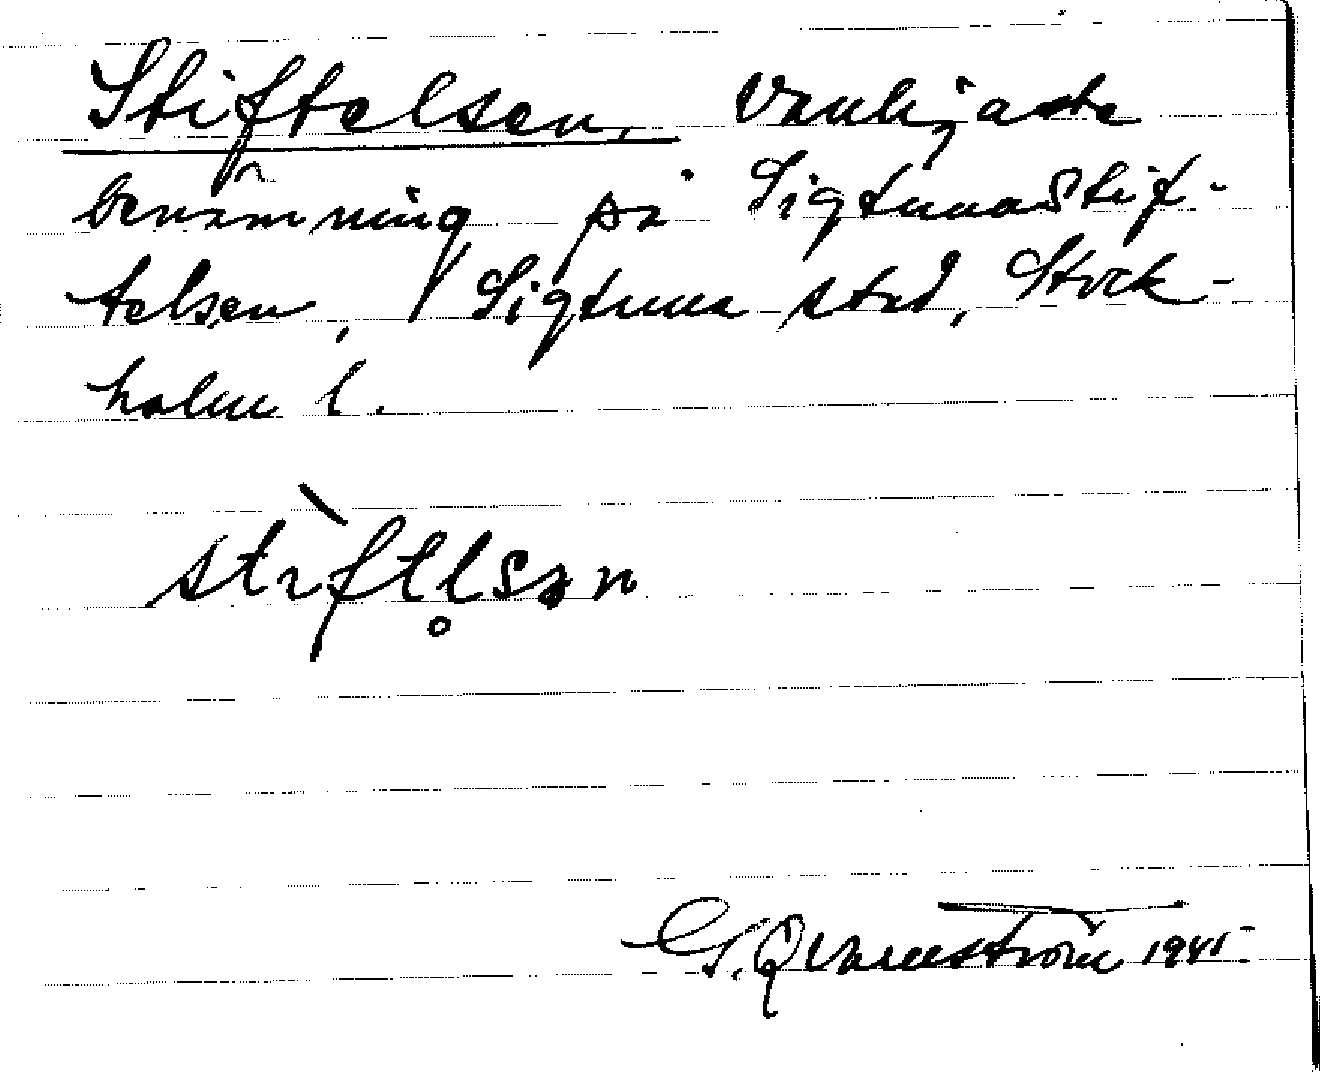 Stiftelsen. Vanligaste
benämning på Sigtunastif-
telsen, Sigtuna stad, Stock-
holm l.
stìftl̥sən
G. Qvarnström 1945